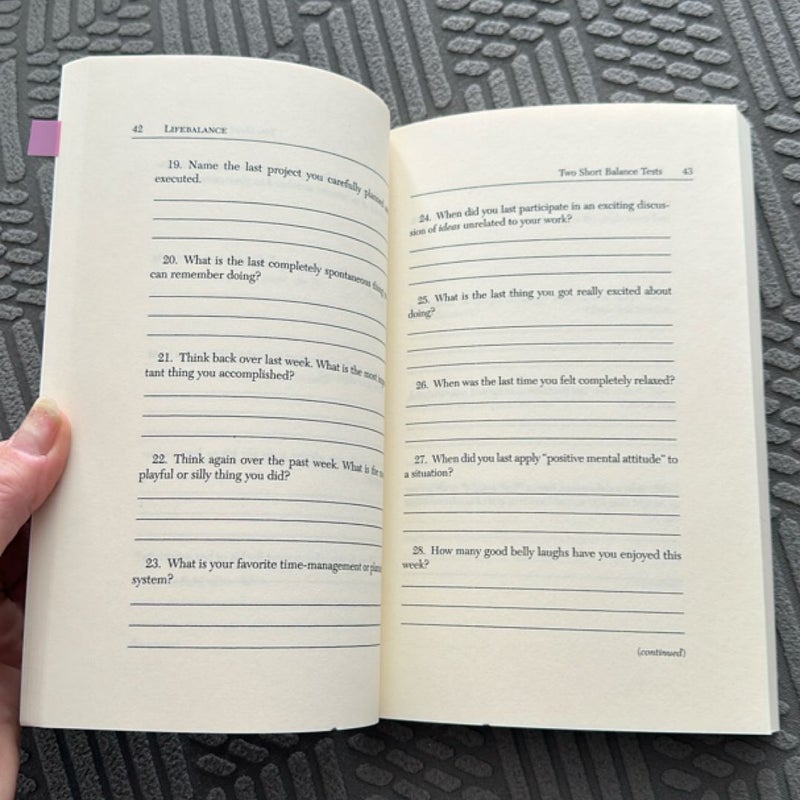 42 LIFEBALANCE
19. Name the last project you carefully planned
executed.
20. What is the last completely spontaneous thing
can remember doing?
21. Think back over last week. What is the most
tant thing you accomplished?
22. Think again over the past week. What is the
playful or silly thing you did?
23. What is your favorite time-management or
system?
Two Short Balance Tests 43
24. When did you last participate in an exciting discus-
sion of ideas unrelated to your work?
25. What is the last thing you got really excited about
doing?
26. When was the last time you felt completely relaxed?
27. When did you last apply "positive mental attitude" to
a situation?
28. How many good belly laughs have you enjoyed this
week?
(continued)